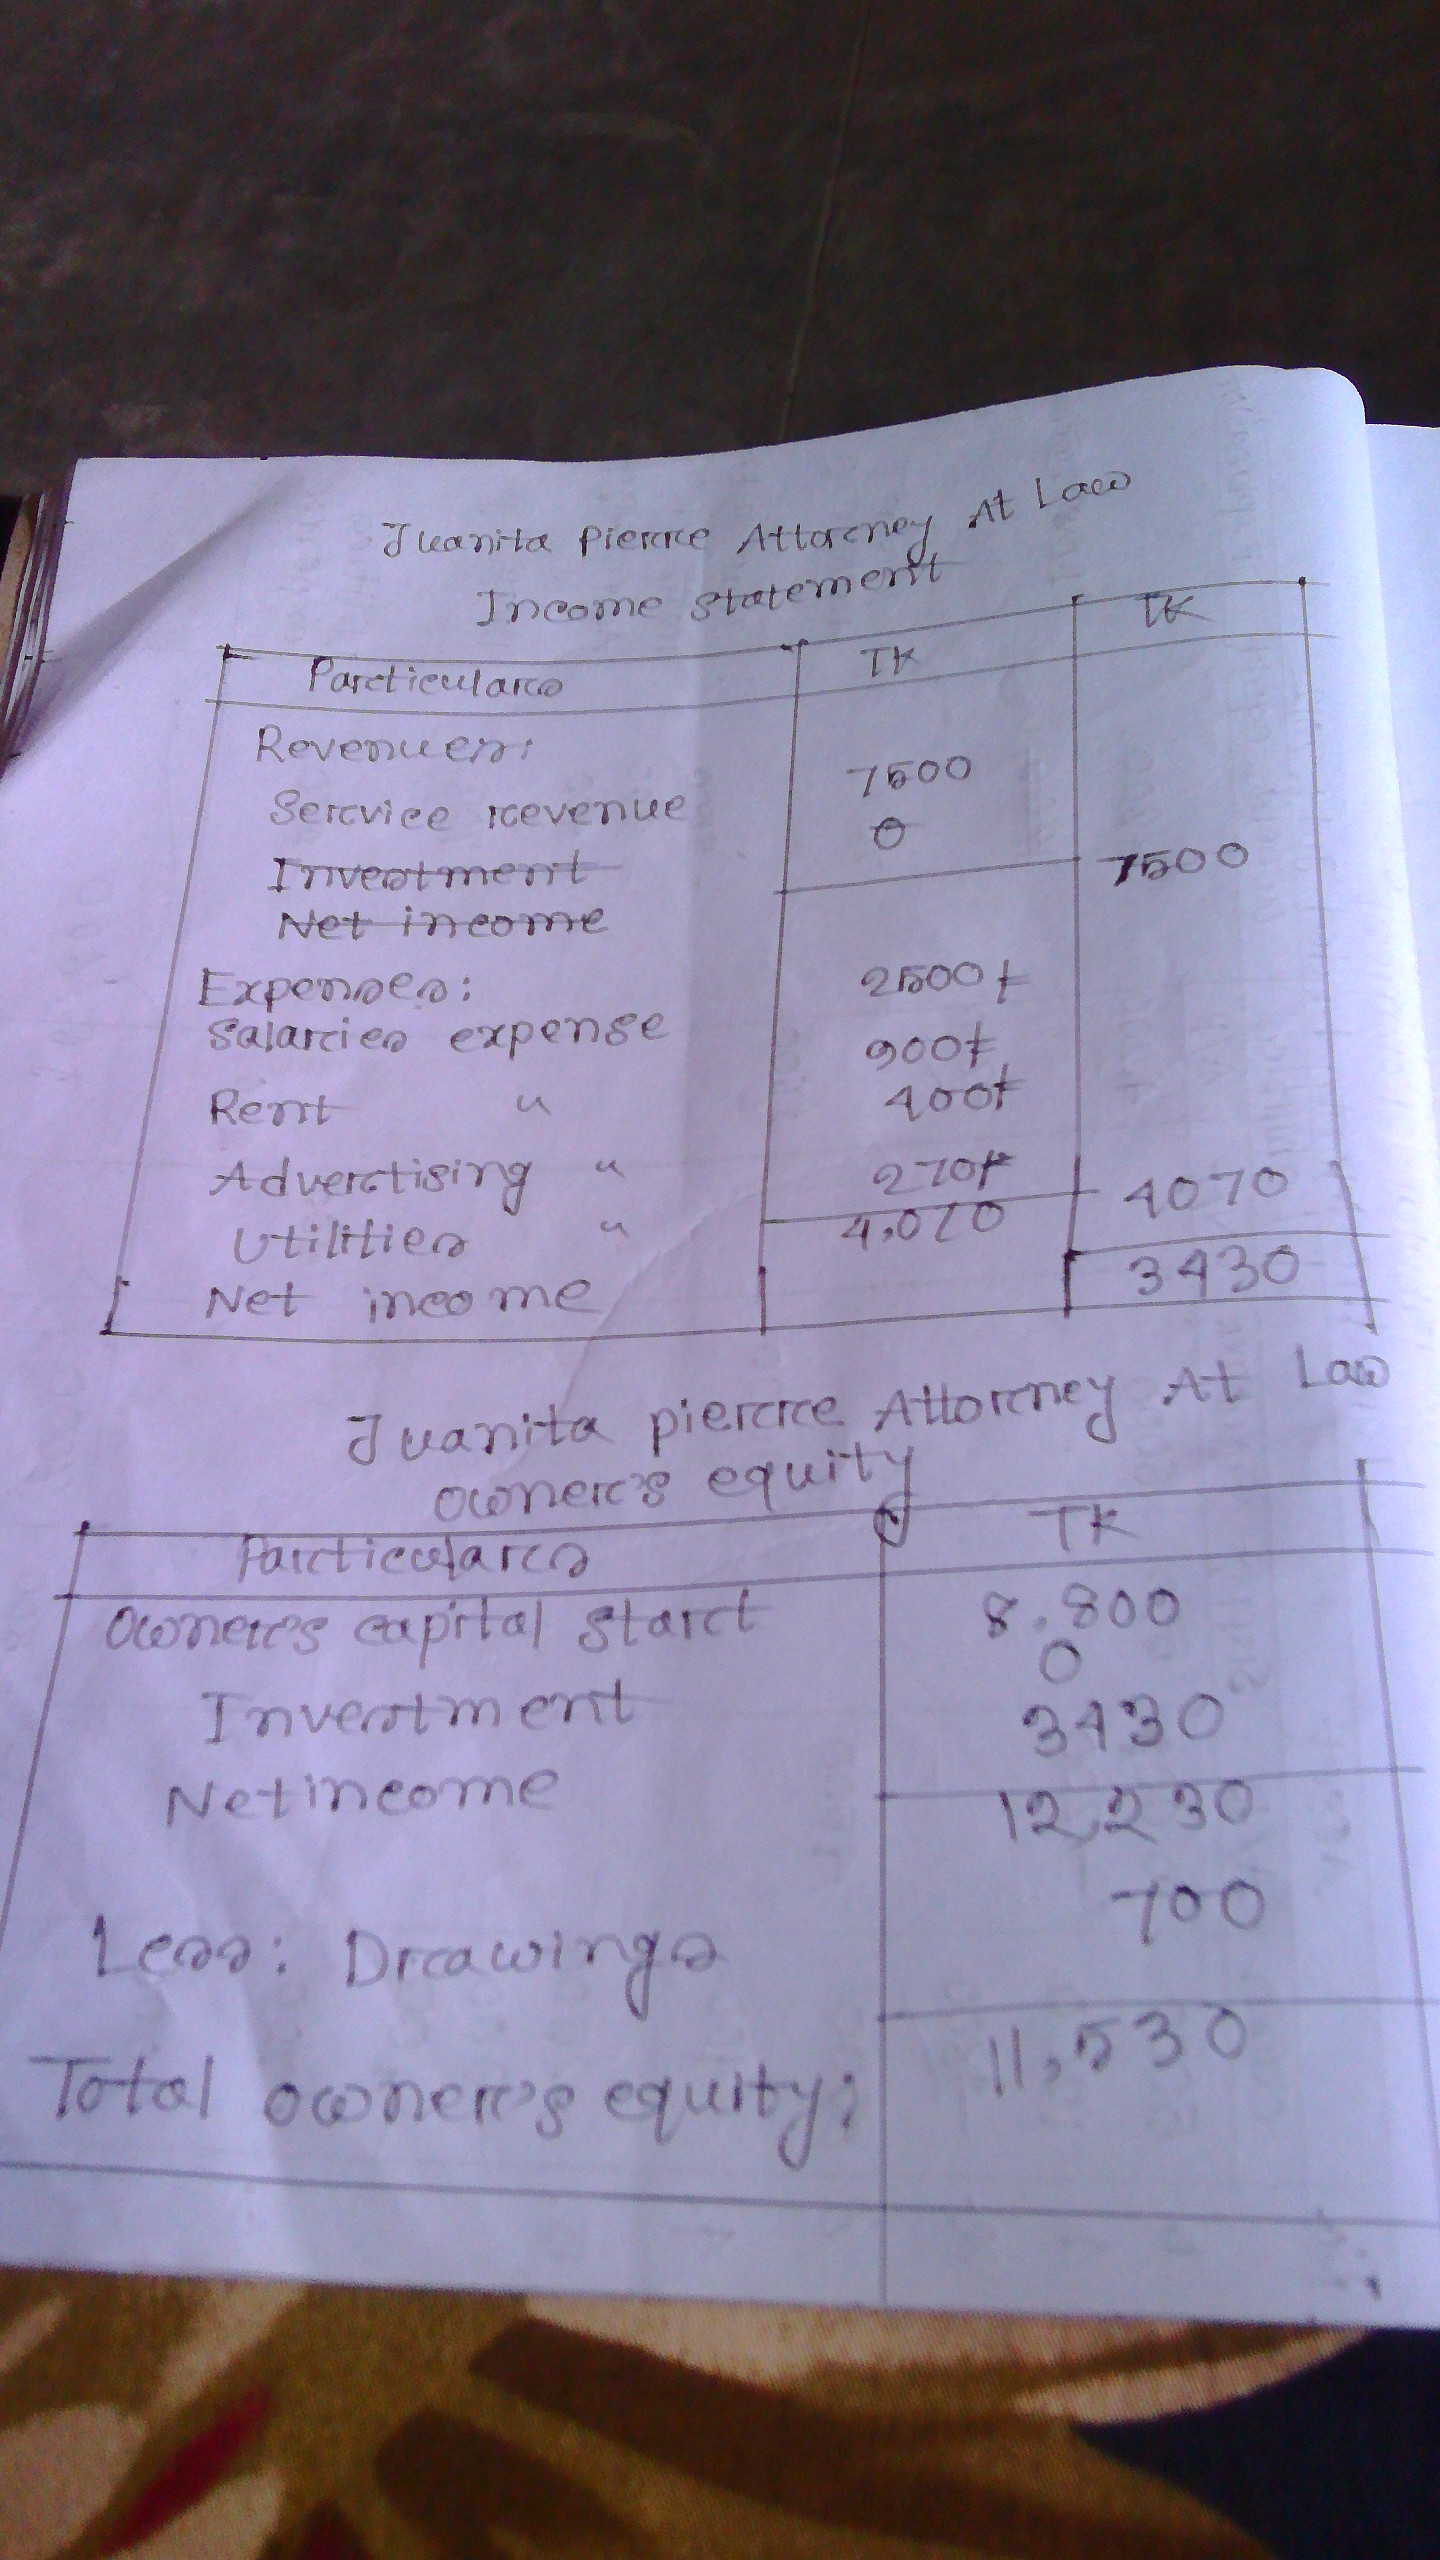 Juanita Pierce Attorney At Law
Income Statement
Particulars TK TK
Revenues:
Service revenue 7500
Investment 0
Net income 7500
Expenses:
Salaries expense 2500
Rent " 900
Advertising " 400
Utilities " 270
4,070 4070
Net income 3430
Juanita pierce Attorney At Law
owner's equity
Particulars TK
owner's capital start 8,800
Investment 0
Net income 3430
12,230
Less: Drawings 700
Total owner's equity; 11,530